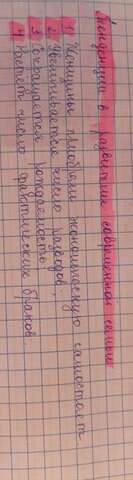 Тенденции в развитие современной семьи
1) Женщины приобрели экономическую самостоят
2 Увеличивается число разводов;
3 Сокращается рождаемость;
4 Растёт число фактических браков.